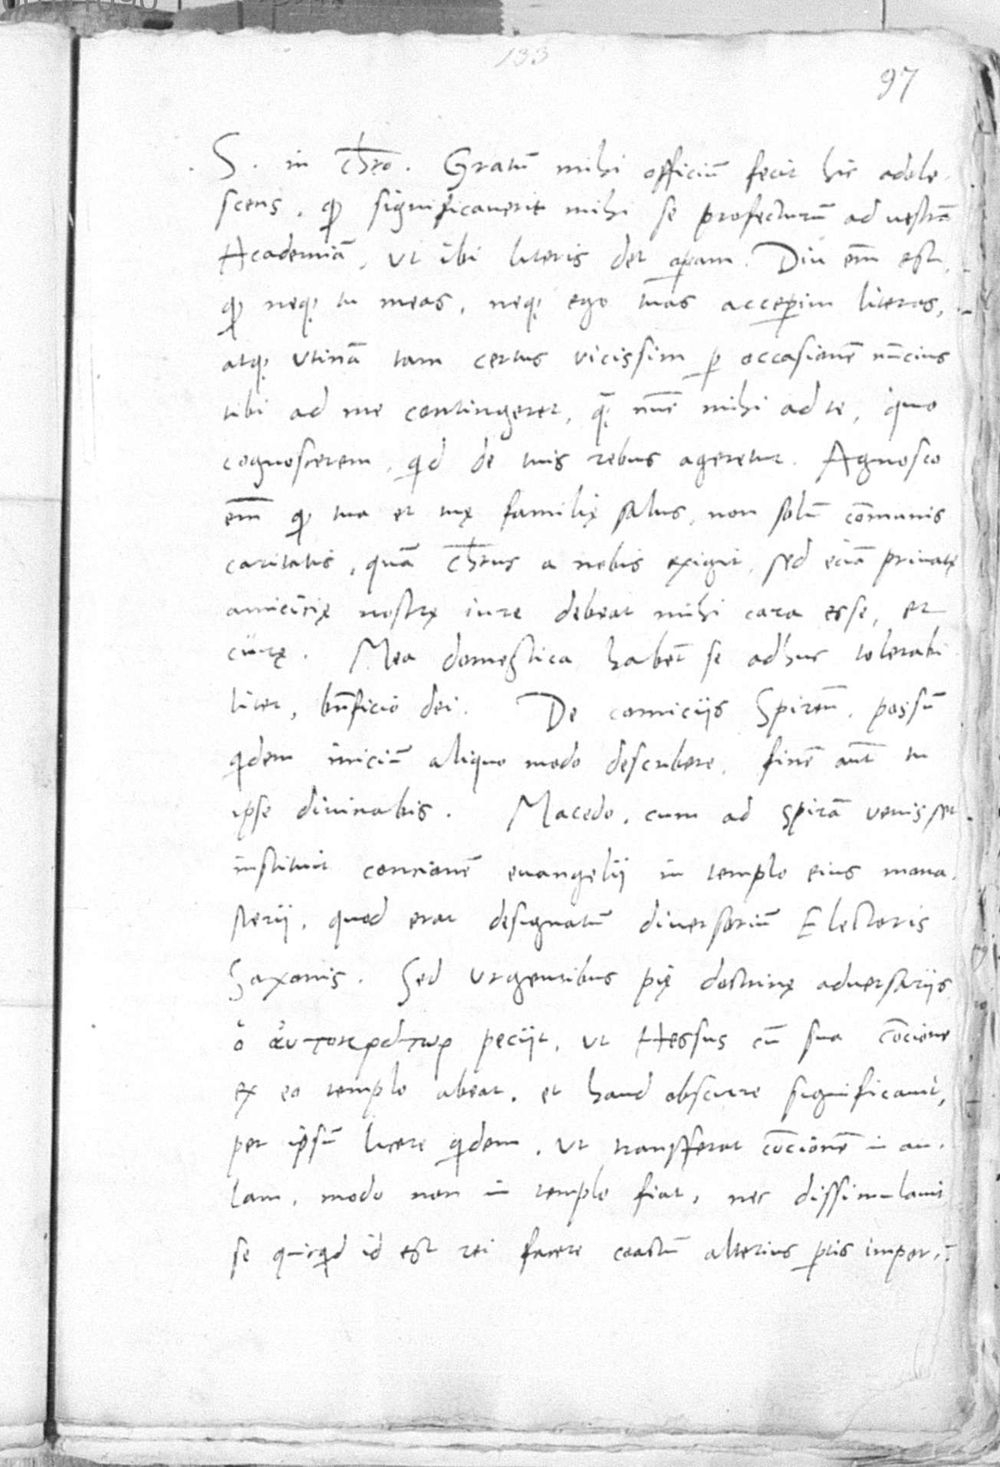 133
97
S. in Chro. Gratū mihi officiū fecit hic adole
scens, qᵈ significaverit mihi se profecturū ad vestrā
Academiā, ut ibi literis det operam. Diu em̄ est,
qᵈ neqꝫ tu meas, neqꝫ ego tuas acceperim literas,
atqꝫ utinā tam certus vicissim ꝑ occasionē nūcius
tibi ad me contingeret, qᵃ nūc mihi ad te, quo
cognoscerem, qid de tuis rebus ageretur. Agnosco
em̄ qᵈ tua et tuę familię salus, non solū cōmunis
caritatis, quā Chrus a nobis exigit, sed eciā privatę
amicicię nostrę iure debeat mihi cara esse, et
curę. Mea domestica habēt se adhuc tolerabi
liter, bn̄ficio dei. De comiciis Spiren̄. possū
qidem iniciū aliquo modo describere, finē aūt tu
ipse divinabis. Macedo, cum ad Spirā venisset
instituit concionē evangelij in templo eius mona
sterij, quod erat designatū diversoriū Electoris
Saxonis. Sed urgentibus pię doctrinę adversarijs
ὁ ἀυτοκράτωρ peciit, ut Hessus cū sua cōcione
ex eo templo abeat, et haud obscure significavit,
per ipsū licere qidem, ut transferat cōcionē in au
lam, modo non in templo fiat, nec dissimulavit
se quicqid id est rei facere coactū alterius ꝑtis impor